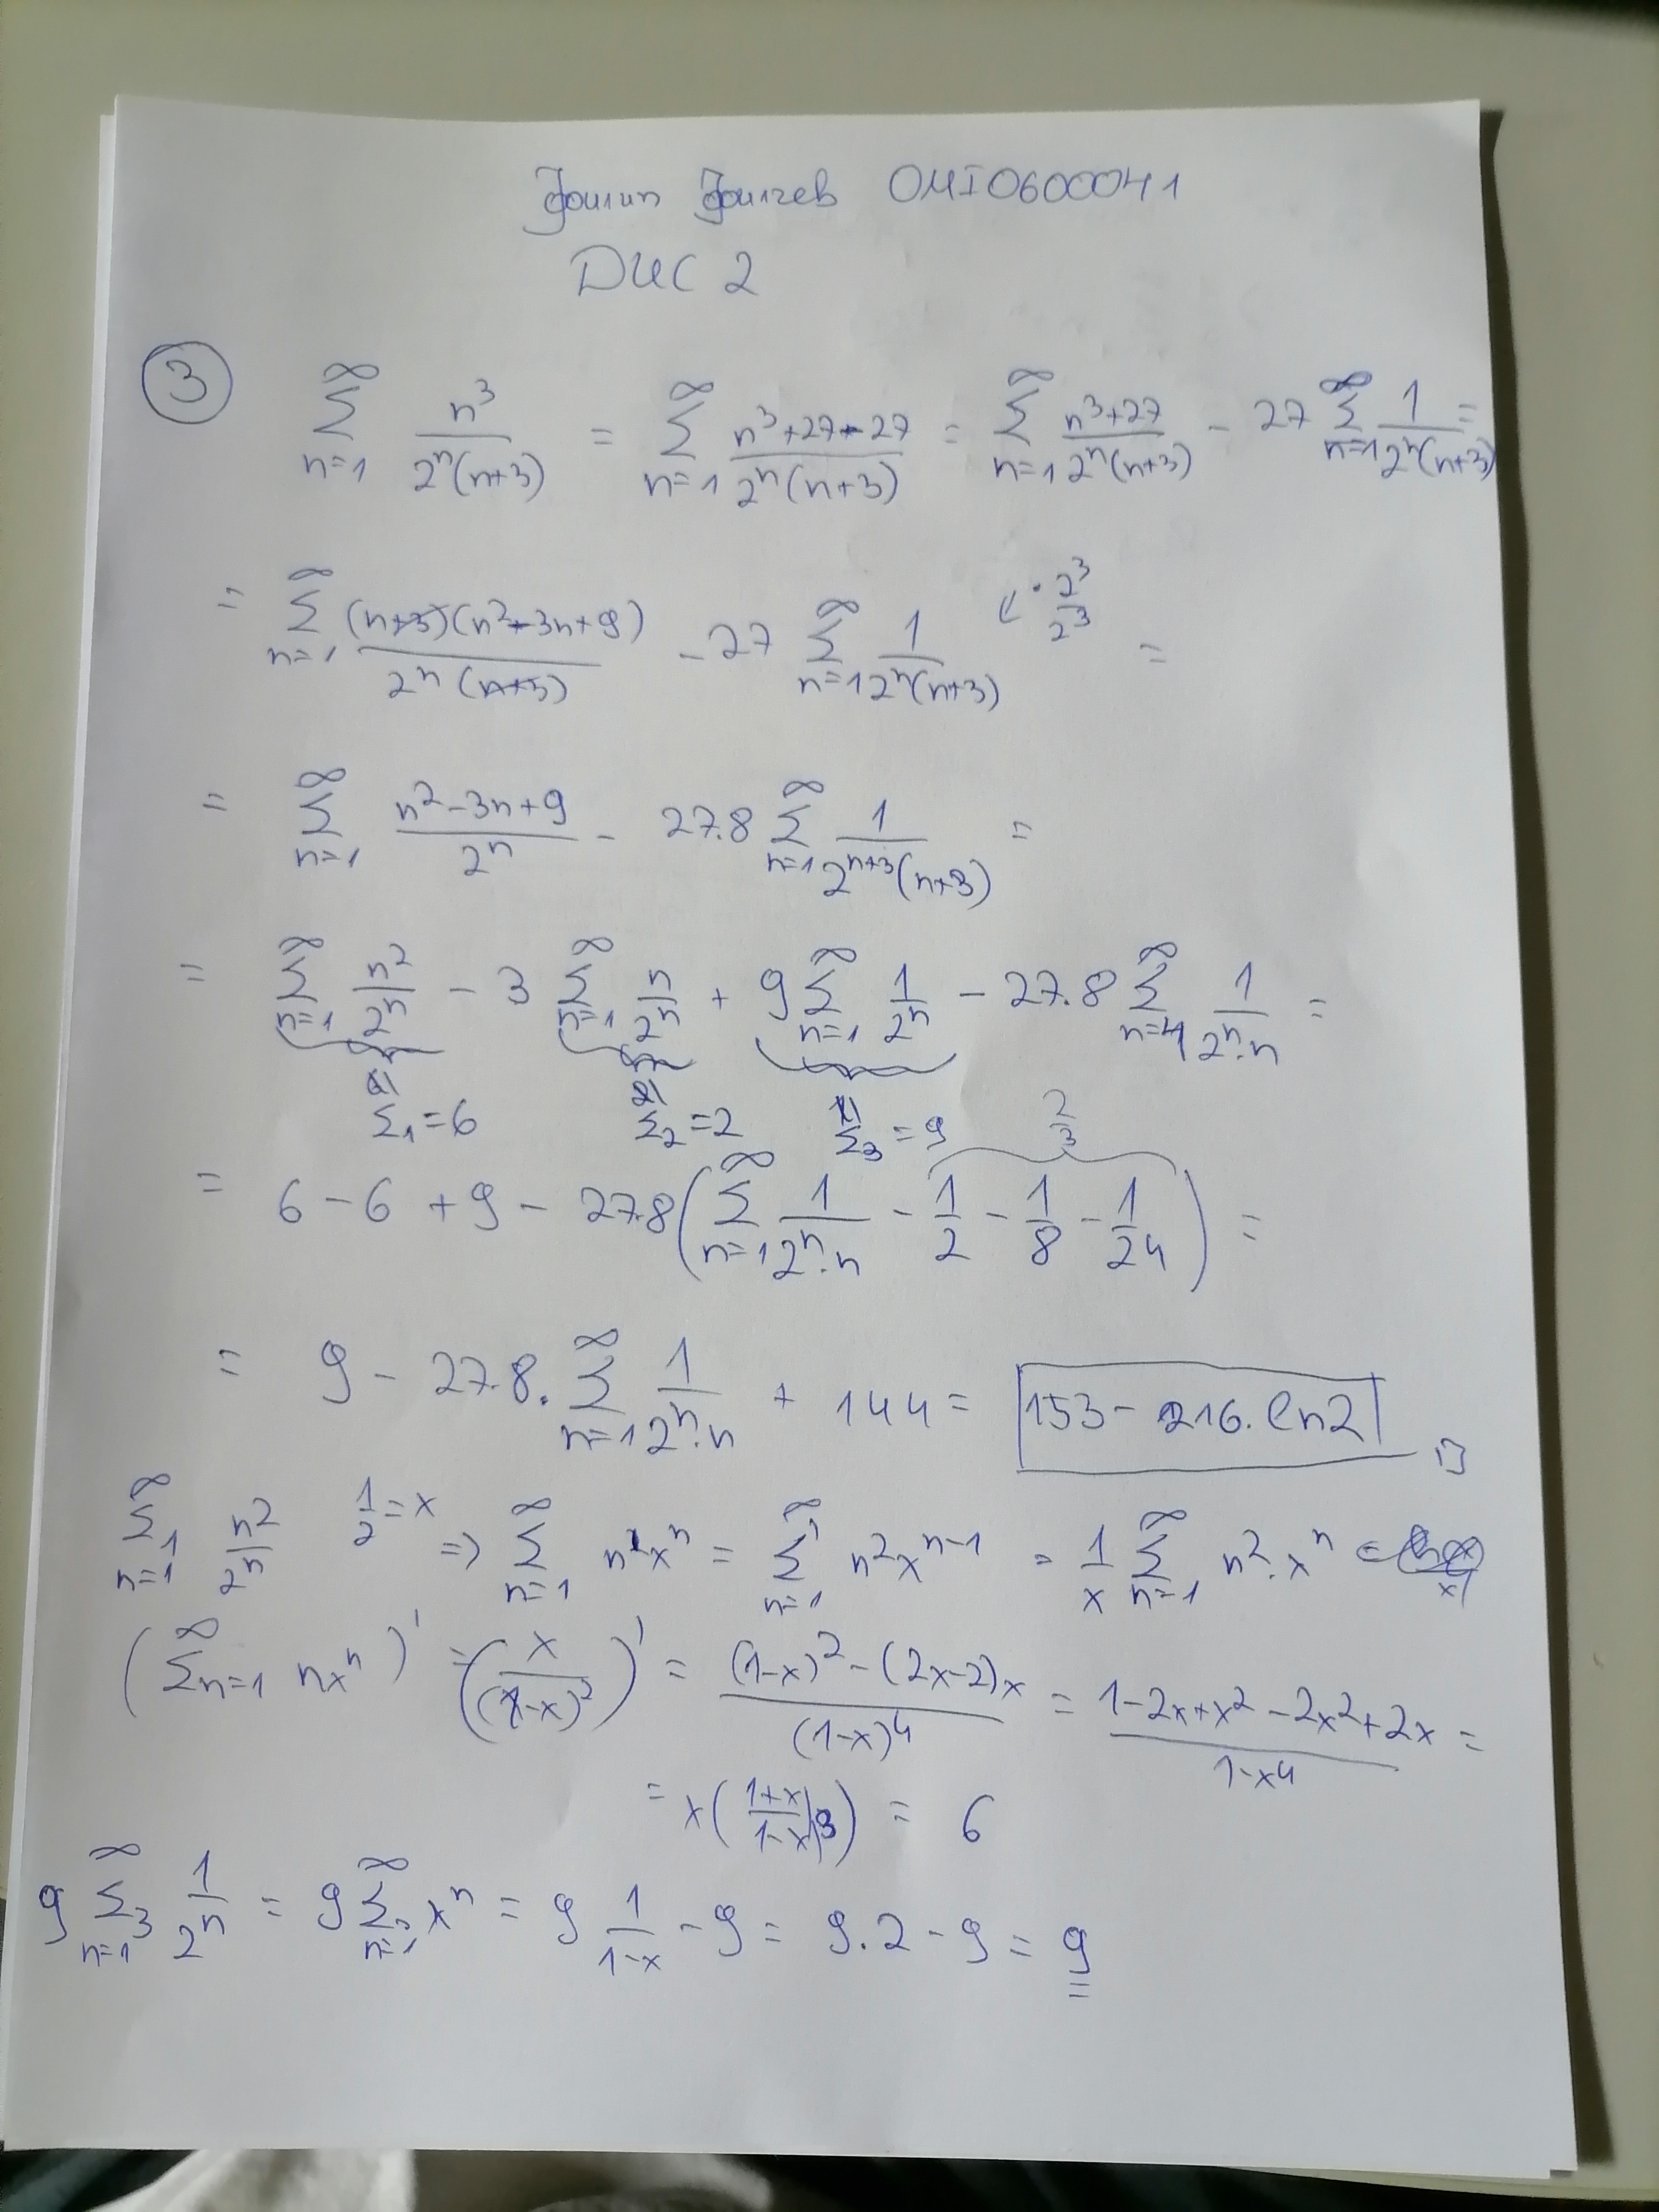 Филип Филчев 0MI0600041
ДИС 2
③ ∑_{n=1}^∞ n³/(2ⁿ(n+3)) = ∑_{n=1}^∞ (n³+27-27)/(2ⁿ(n+3)) = ∑_{n=1}^∞ (n³+27)/(2ⁿ(n+3)) - 27 ∑_{n=1}^∞ 1/(2ⁿ(n+3)) =
= ∑_{n=1}^∞ (n+3)(n²-3n+9)/(2ⁿ(n+3)) - 27 ∑_{n=1}^∞ 1/(2ⁿ(n+3)) · 2³/2³ =
= ∑_{n=1}^∞ (n²-3n+9)/2ⁿ - 27.8 ∑_{n=1}^∞ 1/(2ⁿ⁺³(n+3)) =
= ∑_{n=1}^∞ n²/2ⁿ - 3 ∑_{n=1}^∞ n/2ⁿ + 9 ∑_{n=1}^∞ 1/2ⁿ - 27.8 ∑_{n=4}^∞ 1/(2ⁿ.n) =
∑₁ = 6 ∑₂ = 2 ∑₃ = 9 2/3
= 6 - 6 + 9 - 27.8 (∑_{n=1}^∞ 1/(2ⁿ.n) - 1/2 - 1/8 - 1/24) =
= 9 - 27.8. ∑_{n=1}^∞ 1/(2ⁿ.n) + 144 = 153 - 216. ln2 □
∑_{n=1}^∞ n²/2ⁿ 1/2 = x => ∑_{n=1}^∞ n²xⁿ = ∑_{n=1}^∞ n²xⁿ⁻¹ = 1/x ∑_{n=1}^∞ n².xⁿ =
(∑_{n=1}^∞ nxⁿ)' = (x/(1-x)²)' = ((1-x)²-(2x-2)x)/(1-x)⁴ = (1-2x+x²-2x²+2x)/(1-x⁴) =
= x((1+x)/(1-x)³) = 6
9 ∑_{n=1}^∞ 1/2ⁿ = 9 ∑_{n=1}^∞ xⁿ = 9 1/(1-x) - 9 = 9.2 - 9 = 9